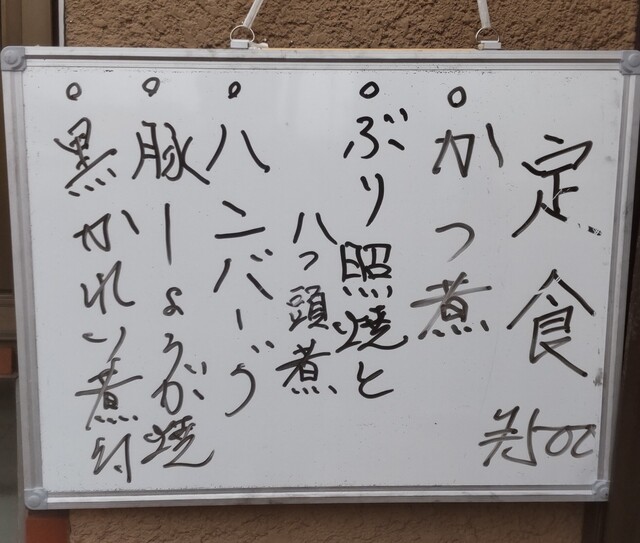 定食
¥500
○かつ煮
○ぶり照焼と
八つ頭煮
○ハンバーグ
○豚しょうが焼
○黒かれい煮付